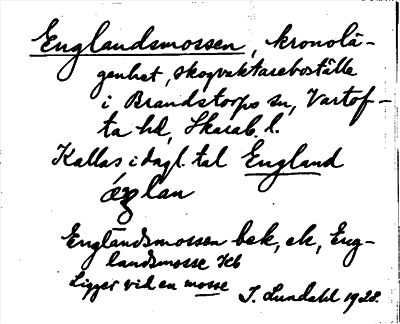 Englandsmossen, kronolä-
genhet, skogvaktareboställe
i Brandstorps sn, Vartof-
ta hd, Skarab. l.
Kallas i dagl. tal England
lan
Englandsmossen bek, ek, Eng-
landsmosse Kb
Ligger vid en mosse
J. Lundahl 1928.